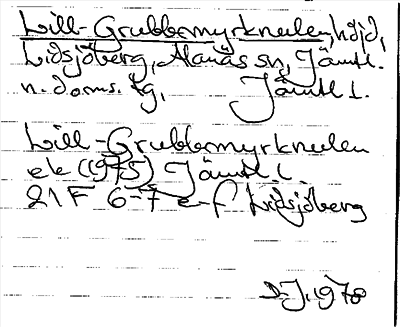 Lill-Grubbermyrkneulen, höjd,
Lidsjöberg, Alanäs sn, Jämtl.
n. doms. tg, Jämtl l.
Lill-Grubbermyrkneulen
ek (1975) Jämtl. l.
21 F 6-7 e-f Lidsjöberg
D.J. 1978